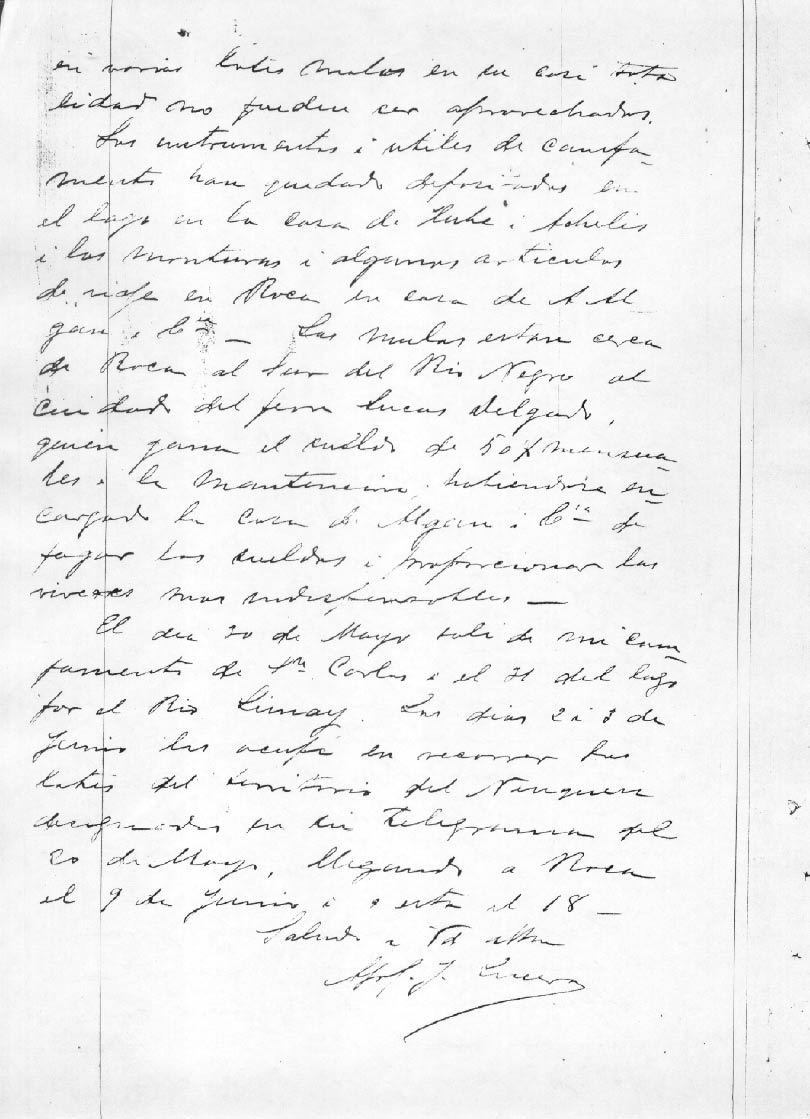 en varios lotes malos en su casi tota
lidad no pueden ser aprovechados.
Los instrumentos i utiles de campa-
mento han quedado depositados en
el lago en la casa de Hube i Achelis
i las monturas i algunos articulos
de viaje en Roca en casa de A. Al
gan i Cia — Las mulas estan cerca
de Roca al Sur del Rio Negro al
cuidado del peon Lucas Delgado,
quien gana el sueldo de 50 $ mensua-
les i la mantencion, habiendose en-
cargado la casa de Algan i Cia de
pagar los sueldos i proporcionar los
viveres mas indispensables —
El dia 30 de Mayo sali de mi cam-
pamento de Sn Carlos i el 31 del lago
por el Rio Limay. Los dias 2 i 3 de
Junio los ocupé en recorrer los
lotes del territorio del Neuquen
designados en su telegrama del
20 de Mayo, llegando a Roca
el 9 de Junio i a esta el 18 —
Saluda a Vd